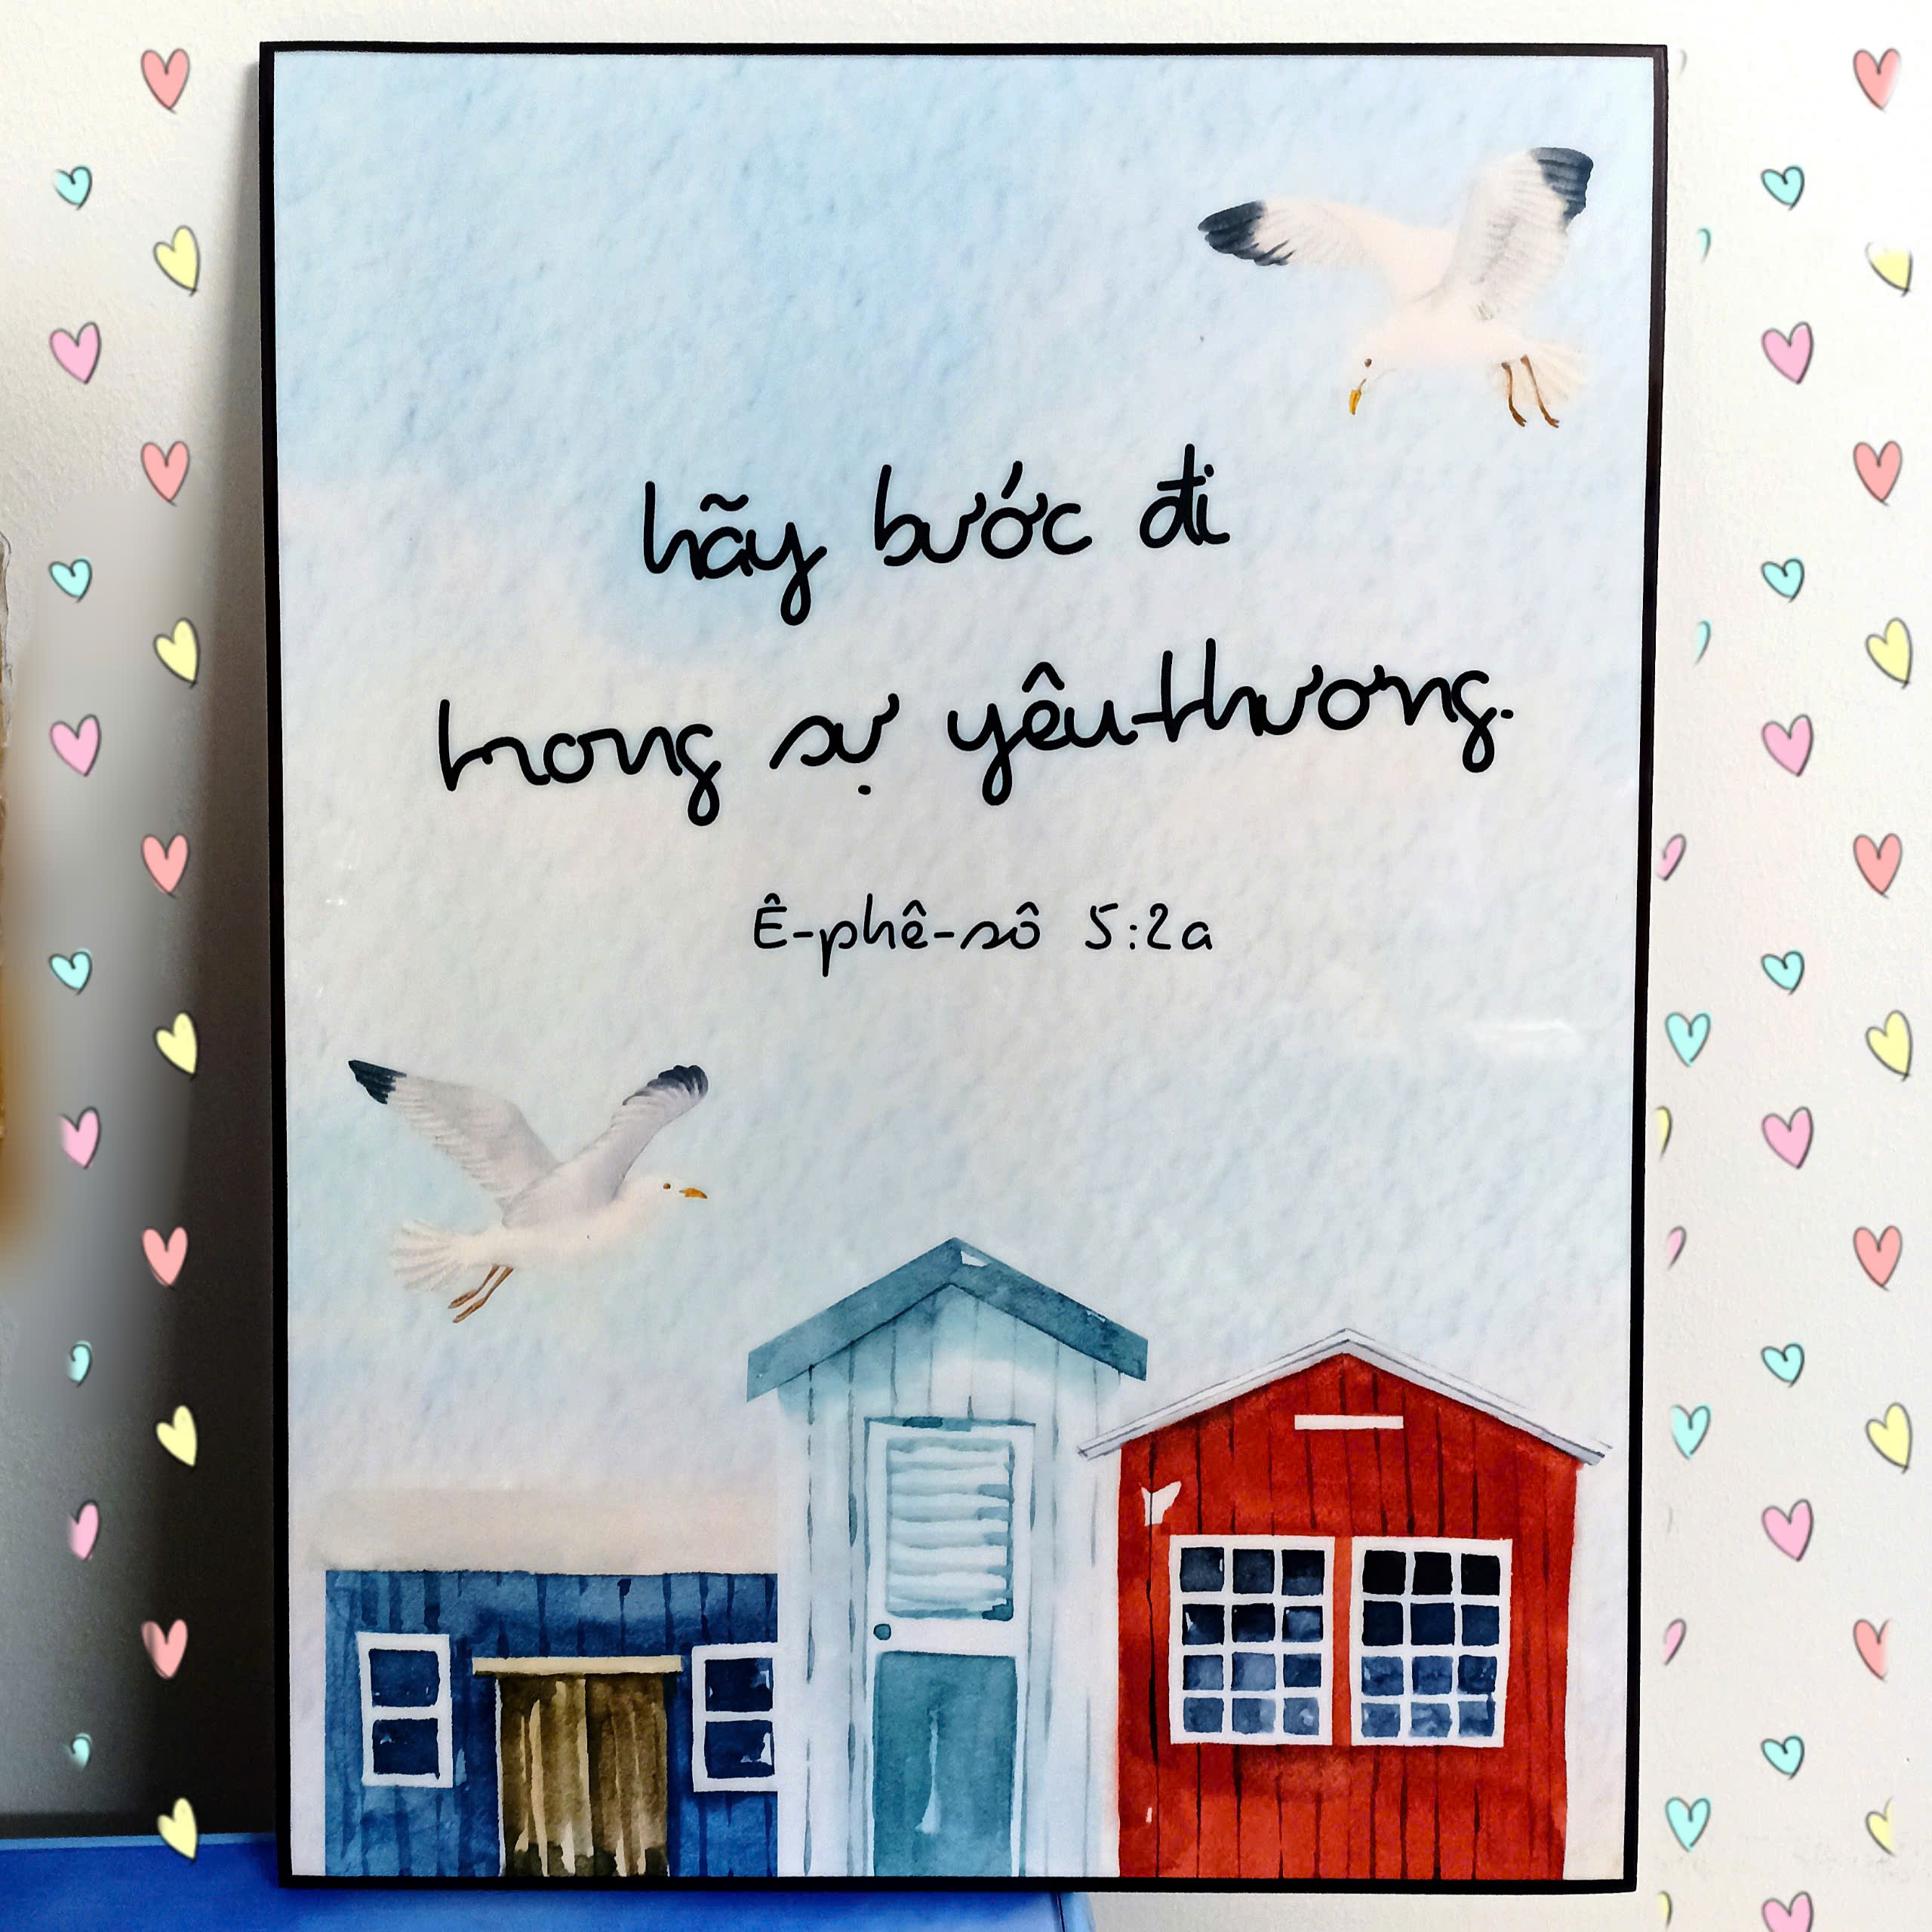 hãy bước đi
trong sự yêu thương.
Ê-phê-sô 5:2a